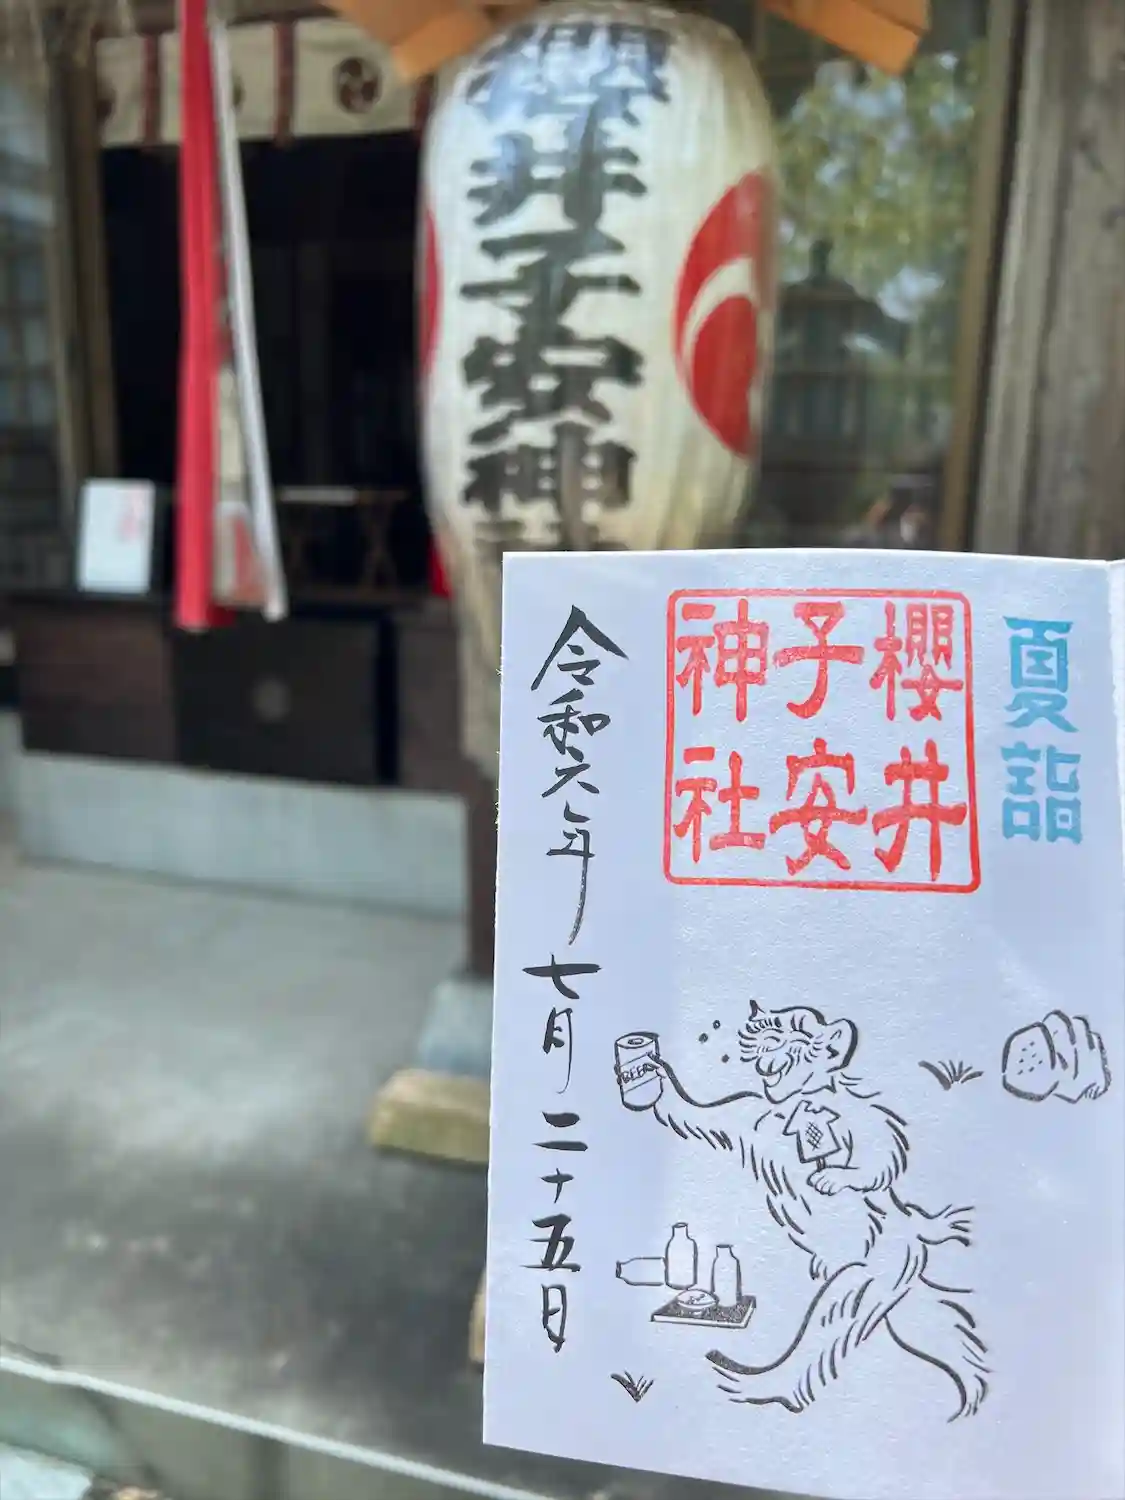 櫻井子安神
夏詣
櫻井
子安
神社
令和六年七月二十五日
BEER